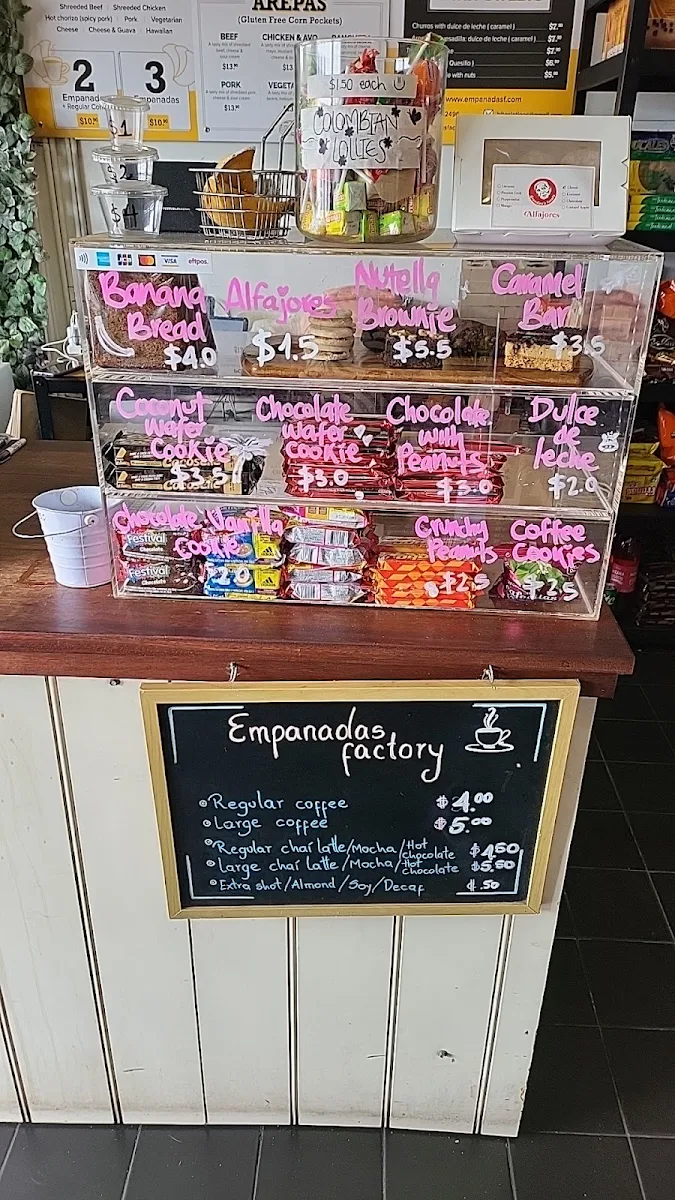 Shredded Beef | Shredded Chicken
Hot chorizo (spicy pork) | Pork | Vegetarian
Cheese | Cheese & Guava | Hawaiian
2
3
Empanadas
Empanadas
+ Regular
$10.90
AREPAS
(Gluten Free Corn Pockets)
BEEF
CHICKEN & AVO
PORK
$13.90
Churros with dulce de leche (caramel)
dulce de leche (caramel)
Quesillo)
with nuts
www.empanadasf.com
$1
$2
$4
$1.50 each
COLOMBIAN
LOLLIES
Alfajores
VISA
eftpos
Banana
Bread
$4.0
Alfajores
$1.5
Nutella
Brownie
$5.5
Caramel
Bar
$3.5
Coconut
Wafer
Cookie
$3.5
Chocolate
Wafer
Cookie
$3.0
Chocolate
with
Peanuts
$3.0
Dulce
de
leche
$2.0
Chocolate
Vanilla
Cookie
Festival
Chocolate
Festival
Chocolate
Crunchy
Peanuts
$2.5
Coffee
Cookies
$2.5
Empanadas
factory
Regular coffee $4.00
Large coffee $5.00
Regular chai latte/Mocha/Hot chocolate $4.50
Large chai latte/Mocha/Hot chocolate $5.50
Extra shot/Almond/Soy/Decaf .50